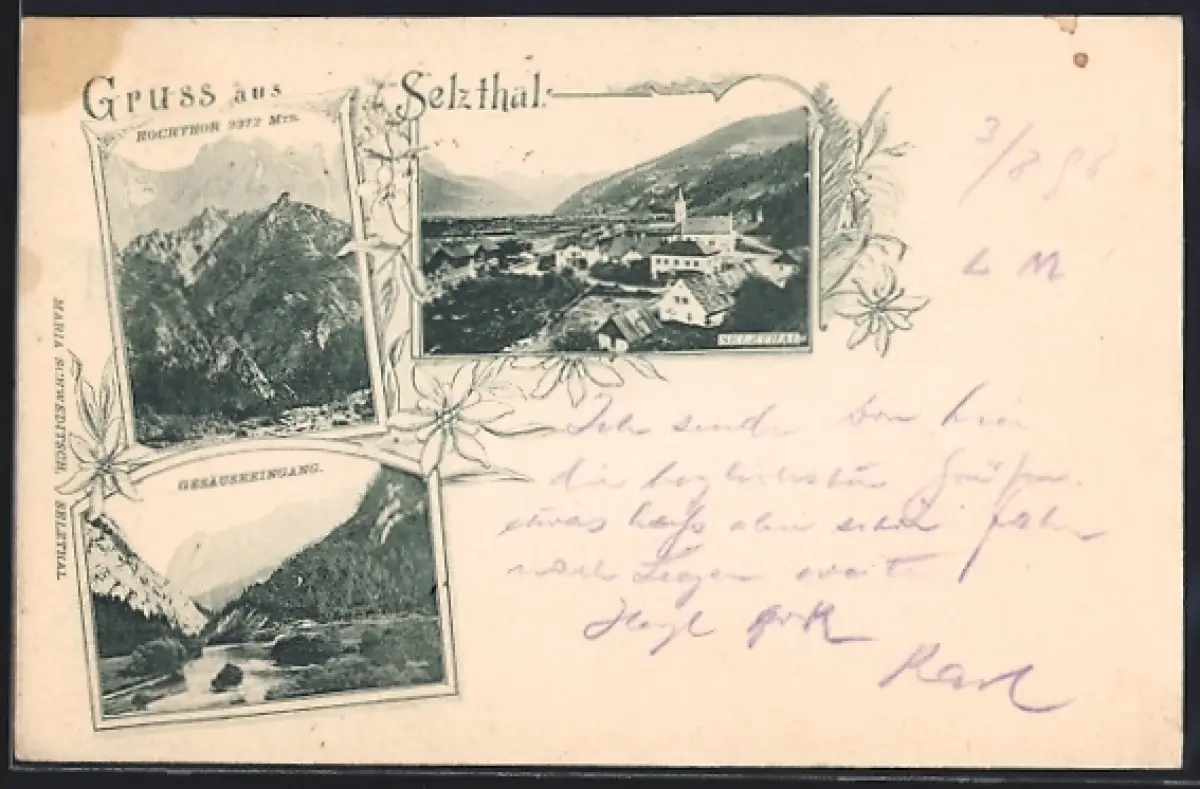 Gruss aus Selzthal.
HOCHTHOR 2372 Mts.
SELZTHAL
GESÄUSEEINGANG.
MARIA SCHWEDITSCH, SELZTHAL
3/8 98
L M
Ich sende von hier
die herzlichsten Grüße.
etwas heiß aber schön
Karl